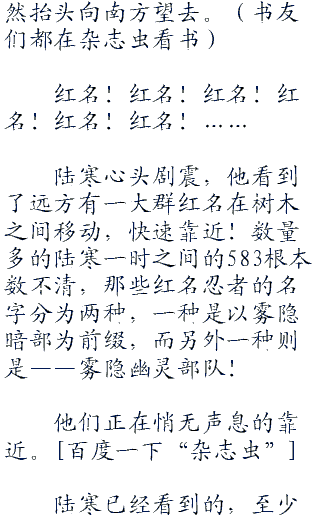 然抬头向南方望去。（书友
们都在杂志虫看书）
红名！红名！红名！红
名！红名！红名！……
陆寒心头剧震，他看到
了远方有一大群红名在树木
之间移动，快速靠近！数量
多的陆寒一时之间的583根本
数不清，那些红名忍者的名
字分为两种，一种是以雾隐
暗部为前缀，而另外一种则
是——雾隐幽灵部队！
他们正在悄无声息的靠
近。[百度一下“杂志虫”]
陆寒已经看到的，至少